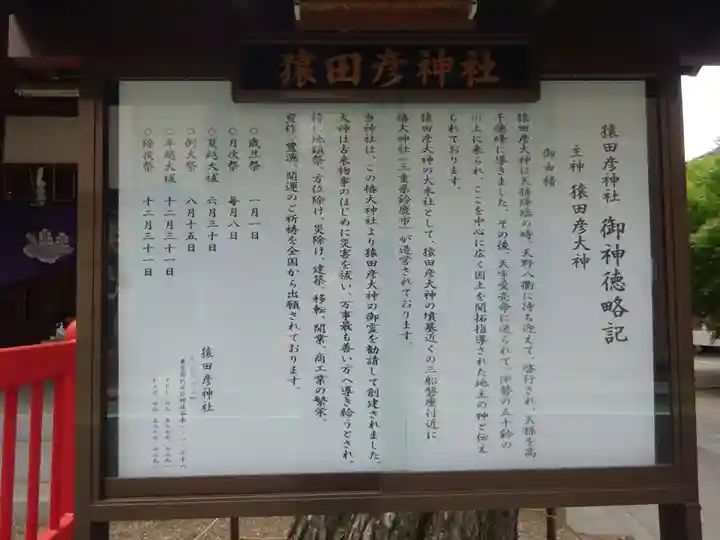 猿田彦神社
猿田彦神社 御神徳略記
主神 猿田彦大神
御由緒
猿田彦大神は天孫降臨の時、天野八衢に待ち迎えて、啓行され、天孫を高
千穂峰に導きました。その後、天宇受売命に送られて、伊勢の五十鈴の
川上に来られ、ここを中心に広く国土を開拓指導された地主の神と伝え
られております。
猿田彦大神の大本社として、猿田彦大神の墳墓近くの三船磐座付近に
椿大神社(三重県鈴鹿市)が造営されております。
当神社は、この椿大神社より猿田彦大神の御霊を勧請して創建されました。
大神は古来物事のはじめに災害を祓い、万事最も善い方へ導き給うとされ、
特に地鎮祭、方位除け、災除け、建築、移転、開業、商工業の繁栄、
豊作、豊漁、開運のご祈祷を全国から出願されております。
○歳旦祭 一月一日
○月次祭 毎月八日
○夏越大祓 六月三十日
○例大祭 八月十五日
○年越大祓 十二月三十一日
○除夜祭 十二月三十一日
猿田彦神社